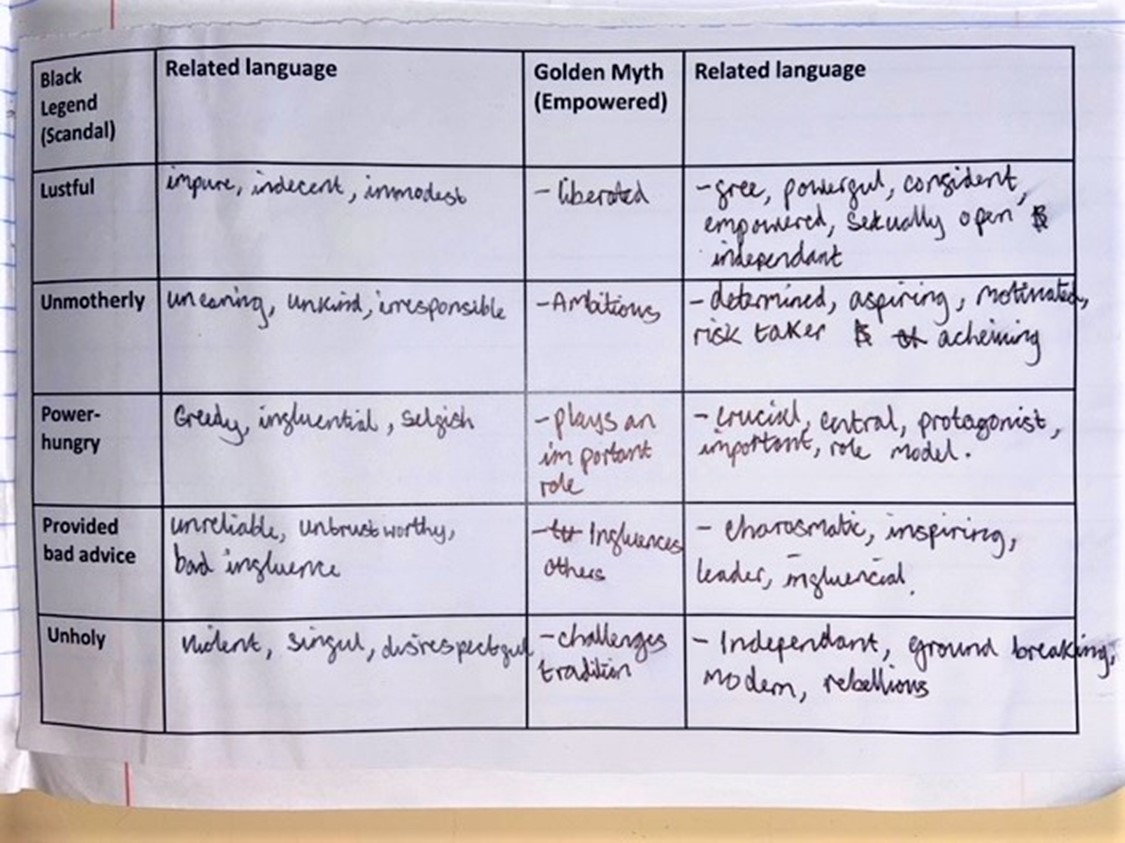 Black Legend (Scandal)
Related language
Golden Myth (Empowered)
Related language
Lustful
impure, indecent, immodest
- liberated
- free, powerful, confident,
empowered, sexually open &
independant
Unmotherly
uncaring, unkind, irresponsible
- Ambitious
- determined, aspiring, motivated,
risk taker & acheiving
Power-
hungry
Greedy, influential, selfish
- plays an
important
role
- crucial, central, protagonist,
important, role model.
Provided
bad advice
unreliable, untrustworthy,
bad influence
- Influences
others
- charasmatic, inspiring,
leader, influencial.
Unholy
violent, sinful, disrespectful
- challenges
tradition
- Independant, ground breaking,
modern, rebellious